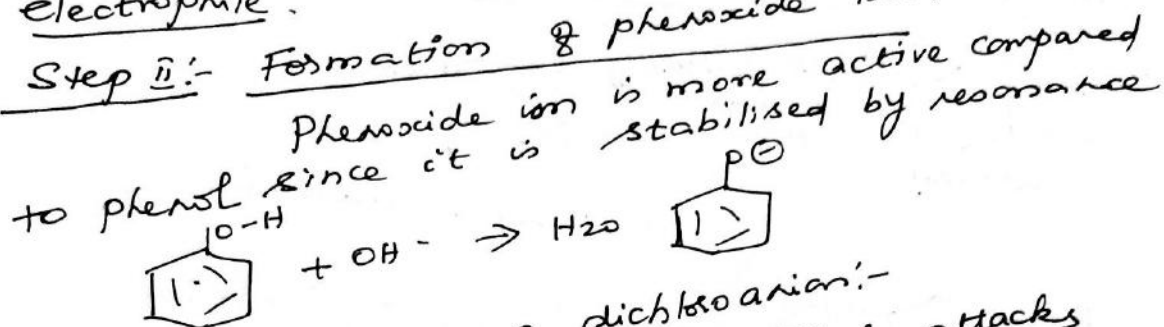 electrophile.
Step II:- Formation of phenoxide
Phenoxide ion is more active compared
to phenol since it is stabilised by resonance
O-H
+ OH⁻ → H2O
O⊖
dichloro anion:-
attacks